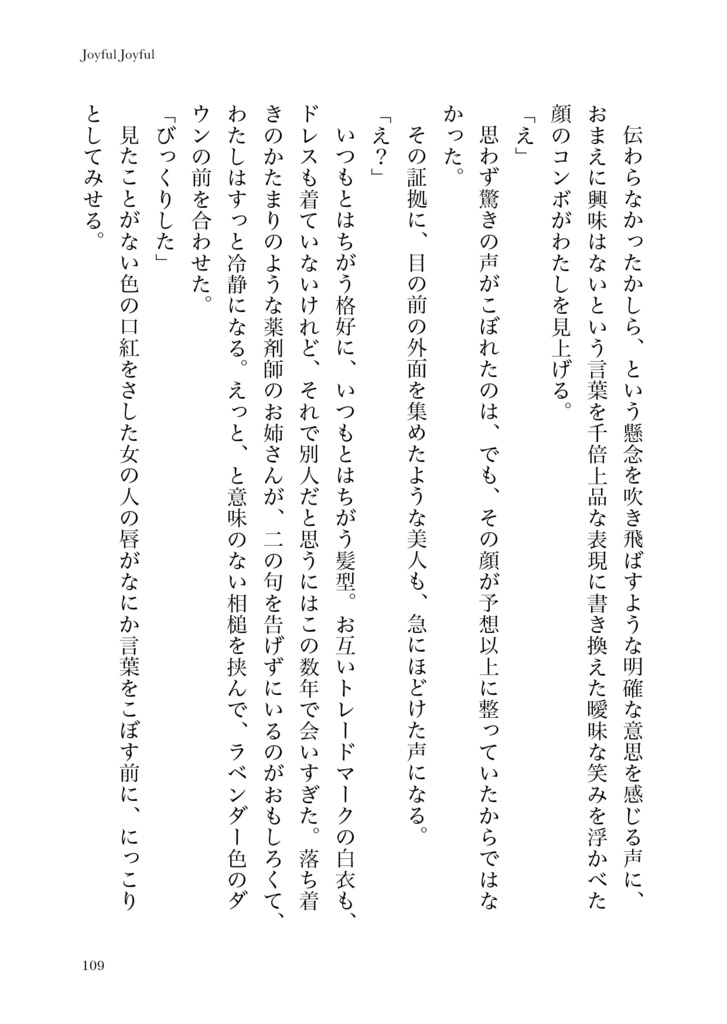 Joyful Joyful
　伝わらなかったかしら、という懸念を吹き飛ばすような明確な意思を感じる声に、
おまえに興味はないという言葉を千倍上品な表現に書き換えた曖昧な笑みを浮かべた
顔のコンボがわたしを見上げる。
「え」
　思わず驚きの声がこぼれたのは、でも、その顔が予想以上に整っていたからではな
かった。
　その証拠に、目の前の外面を集めたような美人も、急にほどけた声になる。
「え？」
　いつもとはちがう格好に、いつもとはちがう髪型。お互いトレードマークの白衣も、
ドレスも着ていないけれど、それで別人だと思うにはこの数年で会いすぎた。落ち着
きのかたまりのような薬剤師のお姉さんが、二の句を告げずにいるのがおもしろくて、
わたしはすっと冷静になる。えっと、と意味のない相槌を挟んで、ラベンダー色のダ
ウンの前を合わせた。
「びっくりした」
　見たことがない色の口紅をさした女の人の唇がなにか言葉をこぼす前に、にっこり
としてみせる。
109